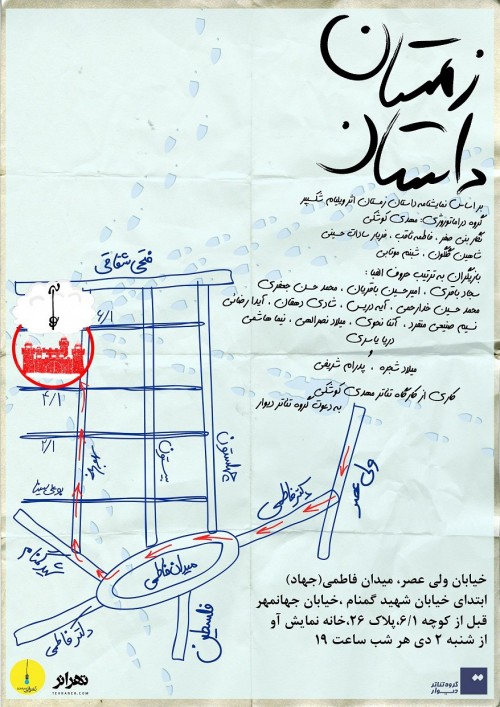 زمستان
داستان
بر اساس نمایشنامه داستان زمستان اثر ویلیام شکسپیر
گروه دراماتورژی: مهدی کوشکی
نگار بنی صفر ، فاطمه ثاقب ، فربار سادات حسینی
شاهین گلگون ، شبنم
بازیگران به ترتیب حروف الفبا:
سجاد باقری ، امیرحسین باقریان ، محمد حسن جعفری
محمد حسین خدارحمی ، آیه ادریس ، شادی دهقان ، آیدا رضائی
نسیم صنیعی منفرد ، آنا نحوی ، میلاد نصرالهی ، نیما هاشمی
دریا یاسری
و
میلاد شجره ، پدرام شریفی
کاری از کارگاه تئاتر مهدی کوشکی
به دعوت گروه تئاتر دیوار
فتحی شقاقی
۶/۱
۴/۱
۲/۱
بوعلی سینا
جهانمهر
بیستون
چهلستون
شهید گمنام
میدان فاطمی
دکتر فاطمی
ولی عصر
دکتر فاطمی
فلسطین
خیابان ولی عصر، میدان فاطمی(جهاد)
ابتدای خیابان شهید گمنام ،خیابان جهانمهر
قبل از کوچه ۶/۱،پلاک ۲۶،خانه نمایش آو
از شنبه ۲ دی هر شب ساعت ۱۹
تهرانر
TEHRANER.COM
گروه تئاتر
دیوار